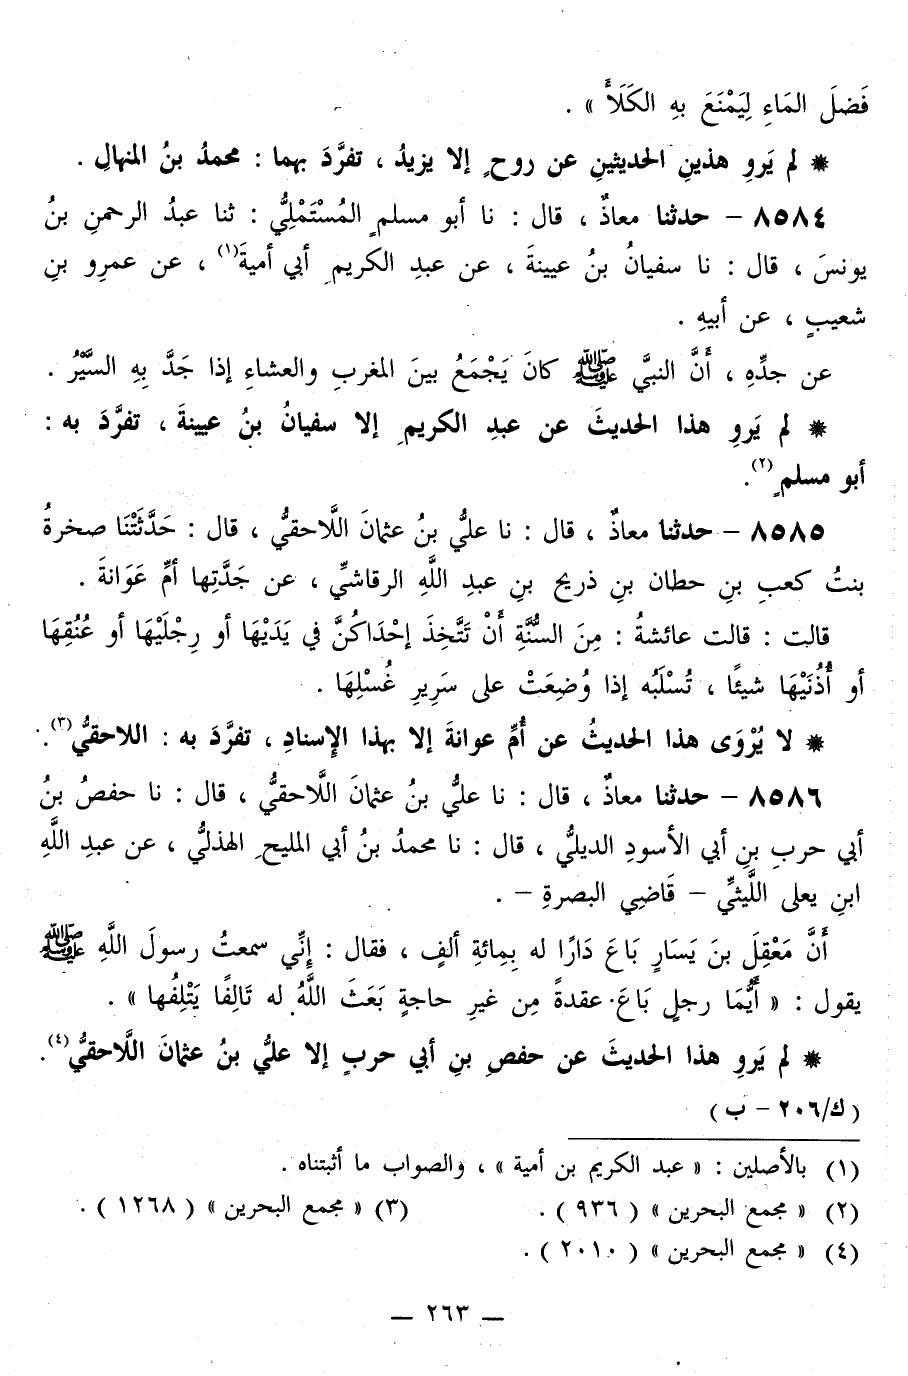 فَضلَ المَاءِ لِيَمْنَعَ بِهِ الكَلَأَ » .
* لم يَروِ هذينِ الحديثينِ عن روحٍ إلا يزيدُ ، تفرَّدَ بهما : محمدُ بنُ المنهالِ .
٨٥٨٤ – حدثنا معاذٌ ، قال : نا أبو مسلمٍ المُسْتَمْلِيُّ : ثنا عبدُ الرحمنِ بنُ
يونسَ ، قال : نا سفيانُ بنُ عيينةَ ، عن عبدِ الكريمِ أبي أميةَ(١) ، عن عمرِو بنِ
شعيبٍ ، عن أبيهِ .
عن جدِّهِ ، أَنَّ النبيَّ ﷺ كانَ يَجْمَعُ بينَ المغربِ والعشاءِ إذا جَدَّ بِهِ السَّيْرُ .
* لم يَروِ هذا الحديثَ عن عبدِ الكريمِ إلا سفيانُ بنُ عيينةَ ، تفرَّدَ به :
أبو مسلمٍ(٢).
٨٥٨٥ – حدثنا معاذٌ ، قال : نا عليُّ بنُ عثمانَ اللَّاحقيُّ ، قال : حَدَّثَتْنَا صخرةُ
بنتُ كعبِ بنِ حطان بنِ ذريحِ بنِ عبدِ اللَّهِ الرقاشيِّ ، عن جَدَّتِها أمِّ عَوَانةَ .
قالت : قالت عائشةُ : مِنَ السُّنَّةِ أَنْ تَتَّخِذَ إحْدَاكُنَّ في يَدَيْهَا أو رِجْلَيْهَا أو عُنُقِهَا
أو أُذُنَيْهَا شيئًا ، تُسْلَبُه إذا وُضِعَتْ على سَرِيرِ غُسْلِهَا .
* لا يُرْوَى هذا الحديثُ عن أُمِّ عوانةَ إلا بهذا الإسنادِ ، تفرَّدَ به : اللاحقيُّ(٣).
٨٥٨٦ – حدثنا معاذٌ ، قال : نا عليُّ بنُ عثمانَ اللَّاحقيُّ ، قال : نا حفصُ بنُ
أبي حربِ بنِ أبي الأسودِ الديليُّ ، قال : نا محمدُ بنُ أبي المليحِ الهذليُّ ، عن عبدِ اللَّهِ
ابنِ يعلى اللَّيثيِّ – قَاضِي البصرةِ – .
أَنَّ مَعْقِلَ بنَ يَسَارٍ بَاعَ دَارًا له بِمِائةِ ألفٍ ، فقال : إنِّي سمعتُ رسولَ اللَّهِ ﷺ
يقول : « أَيُّمَا رجلٍ بَاعَ عقدةً مِن غيرِ حاجةٍ بَعَثَ اللَّهُ له تَالِفًا يَتْلِفُها » .
* لم يَروِ هذا الحديثَ عن حفصِ بنِ أبي حربٍ إلا عليُّ بنُ عثمانَ اللَّاحقيُّ(٤).
(ك/٢٠٦ – ب)
(١) بالأصلين : « عبد الكريم بن أمية » ، والصواب ما أثبتناه .
(٢) « مجمع البحرين » ( ٩٣٦ ) . (٣) « مجمع البحرين » ( ١٢٦٨ ) .
(٤) « مجمع البحرين » ( ٢٠١٠ ) .
— ٢٦٣ —